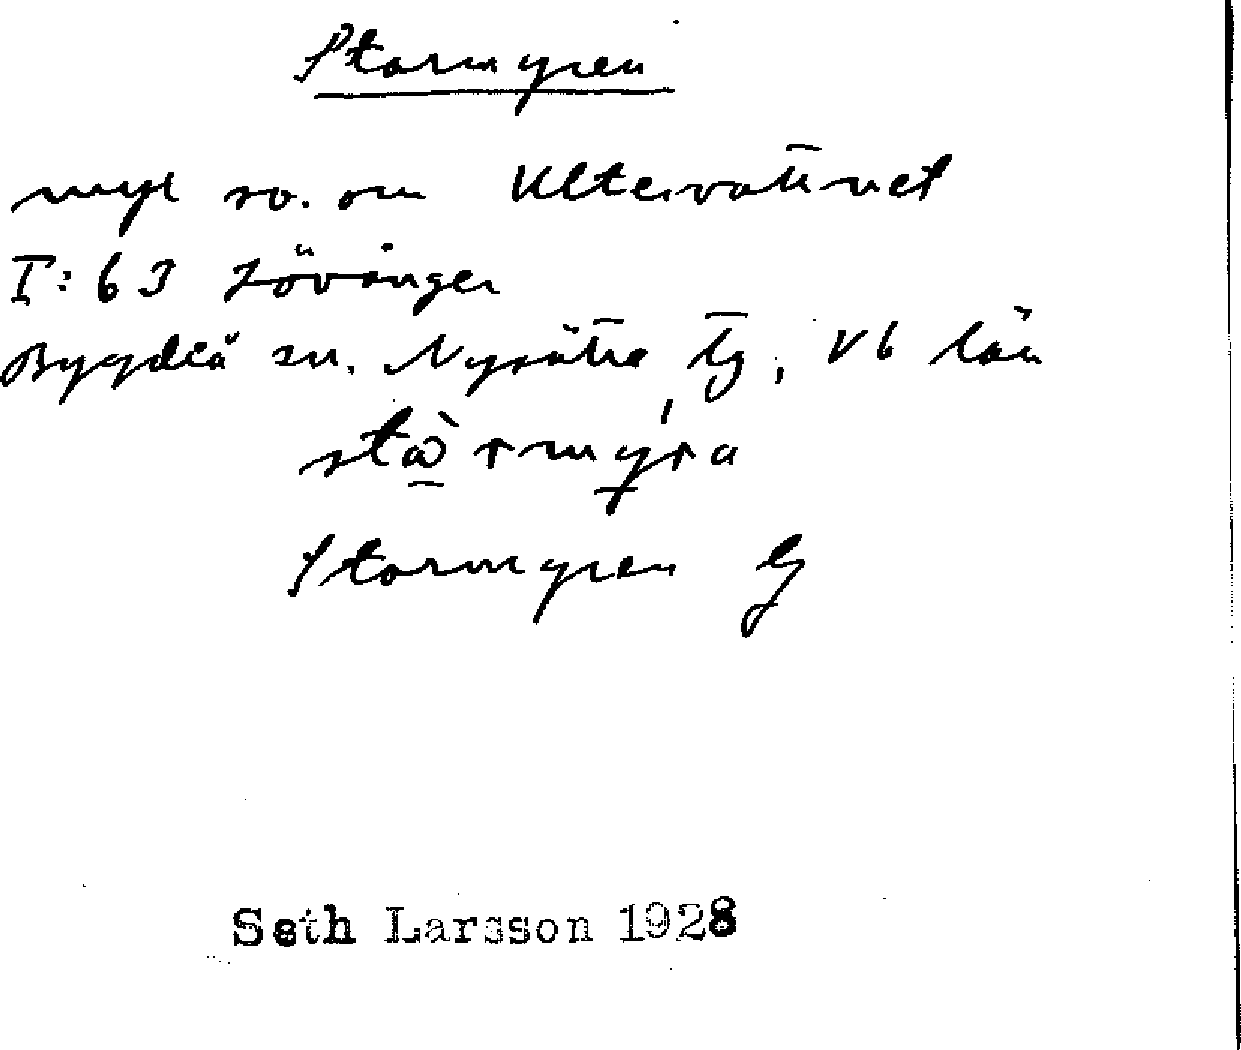 Stormyren
myr so. om Ultervattnet
I: 63 Lövånger
Bygdeå sn. Nysätra tg, Vb län
stårmyra
Stormyren
Seth Larsson 1928